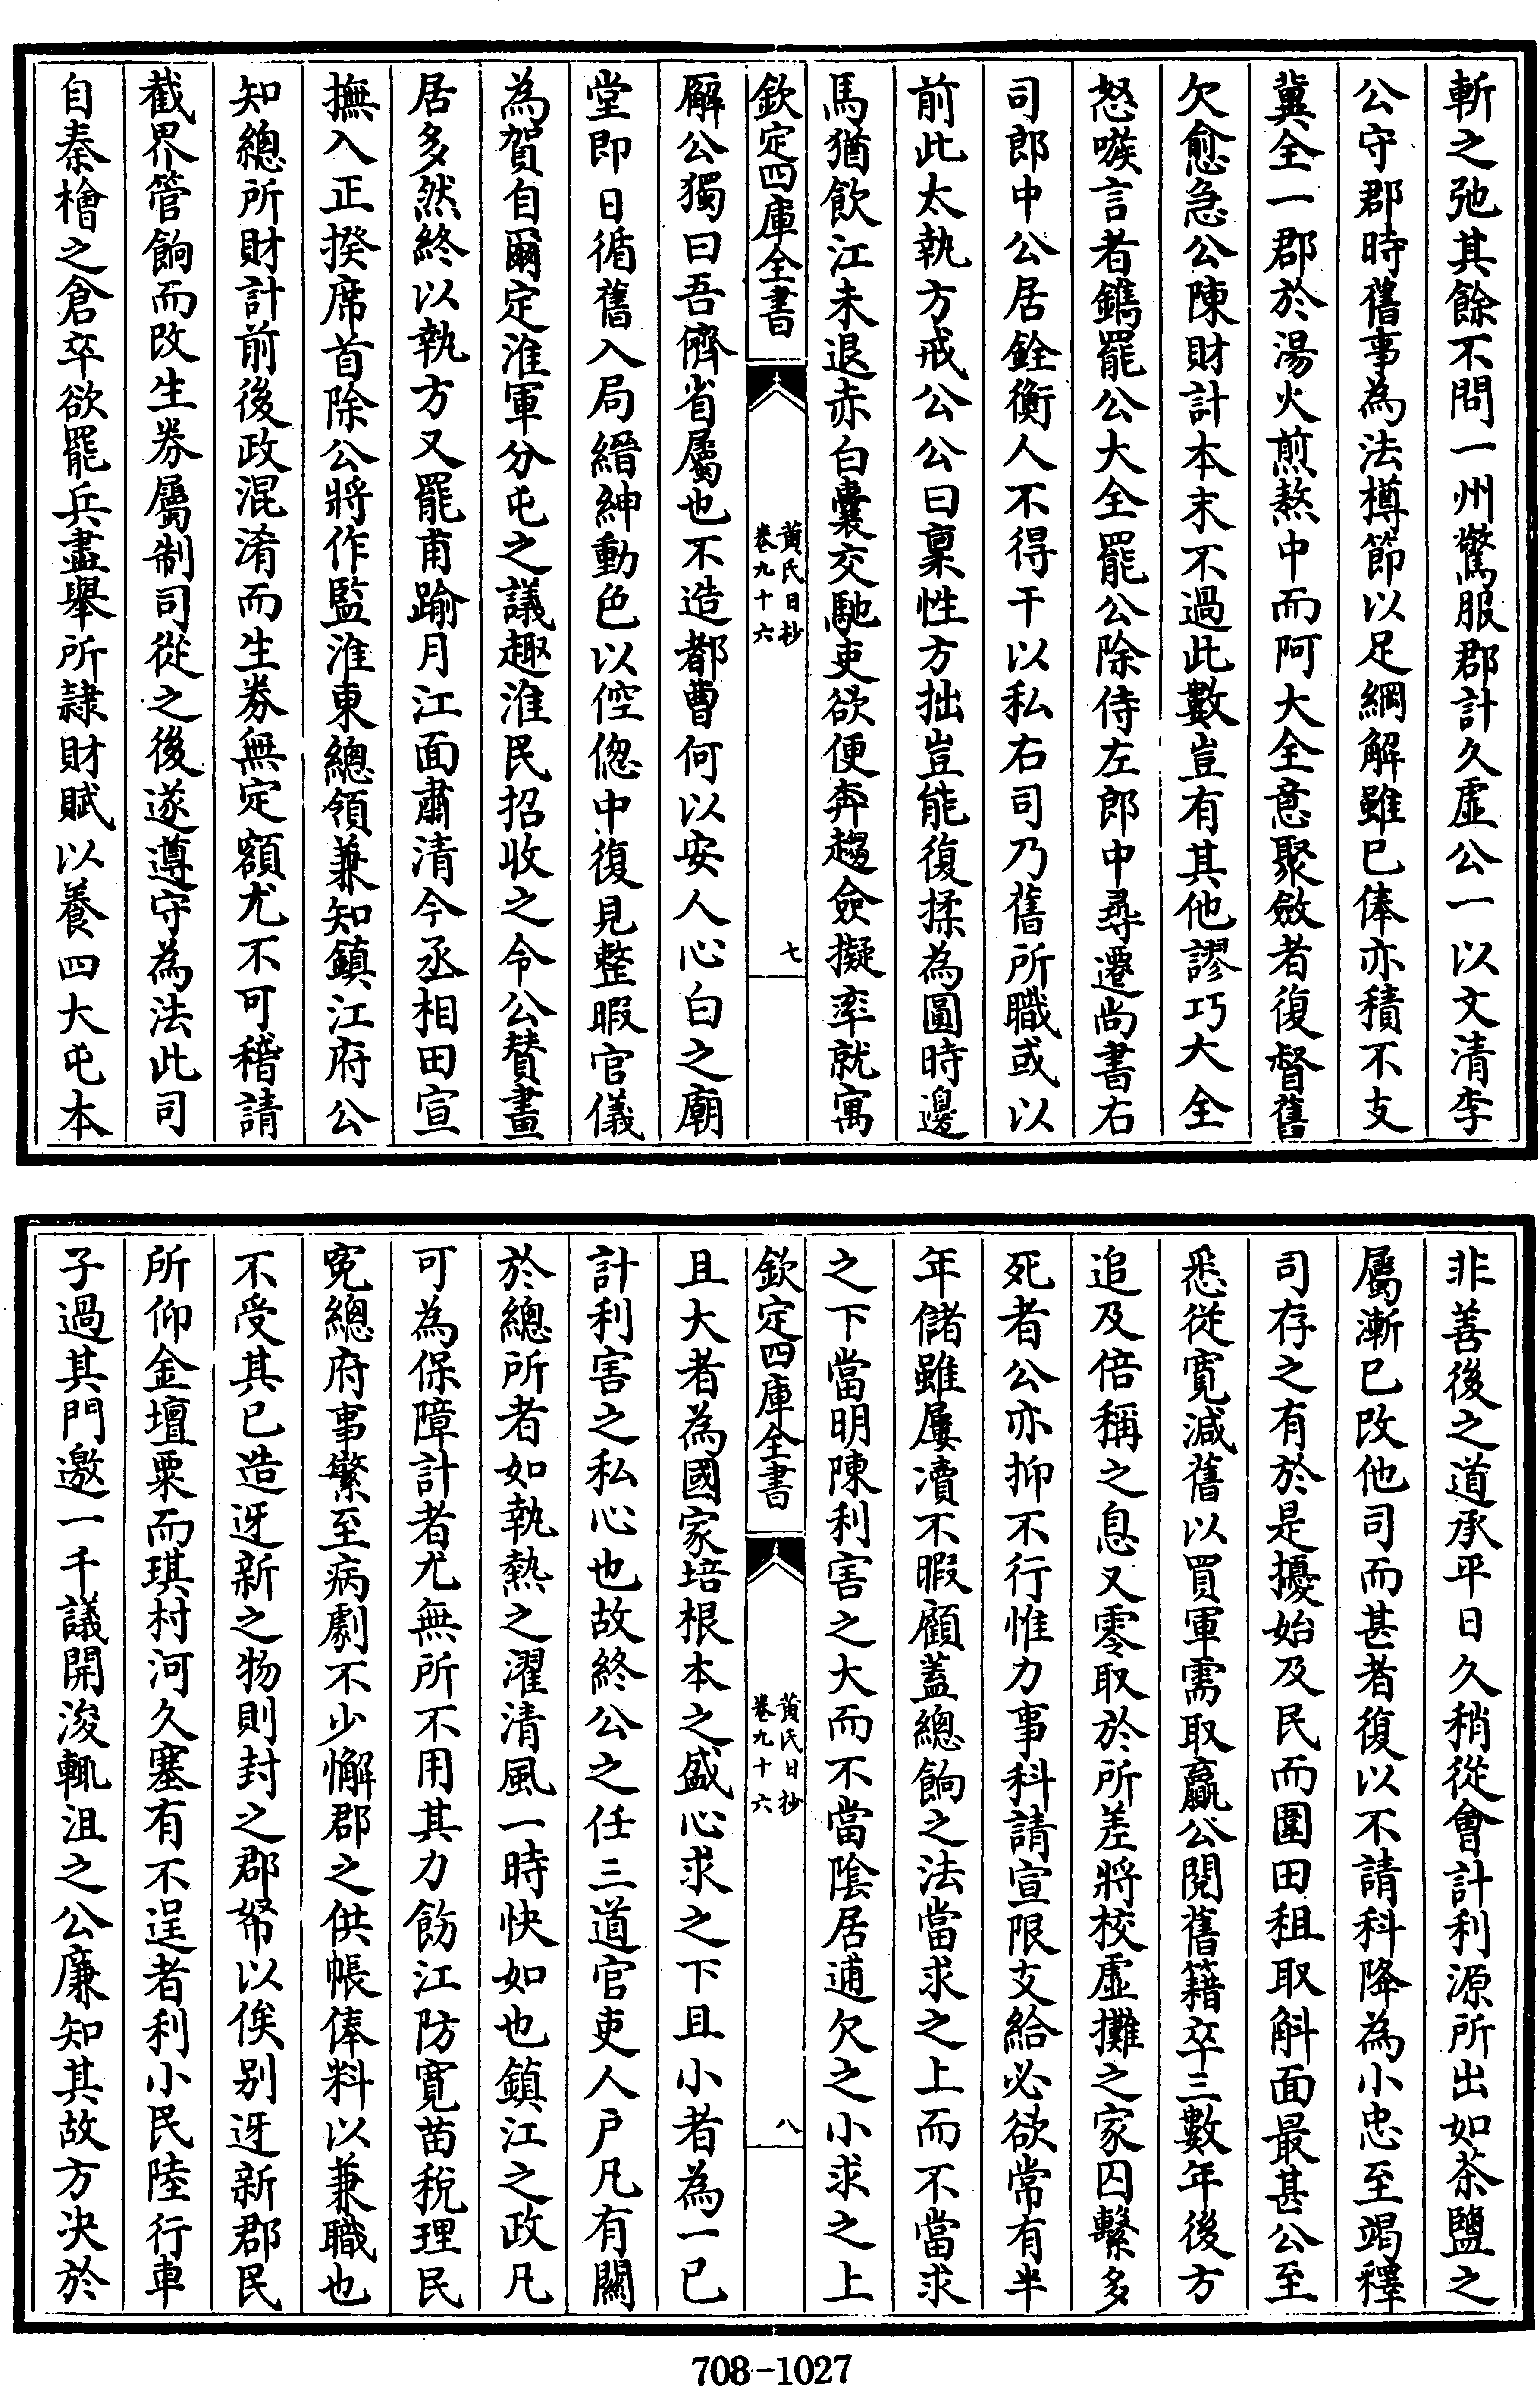 斬之弛其餘不問一州驚服郡計久虛公一以文清李
公守郡時舊事為法樽節以足綱解雖已俸亦積不支
冀全一郡於湯火煎熬中而阿大全意聚斂者復督舊
欠愈急公陳財計本末不過此數豈有其他謬巧大全
怒嗾言者鐫罷公大全罷公除侍左郎中尋遷尚書右
司郎中公居銓衡人不得干以私右司乃舊所職或以
前此太執方戒公公曰稟性方拙豈能復揉為圓時邊
馬猶飲江未退赤白囊交馳吏欲便奔趨僉擬率就寓
欽定四庫全書
黃氏日抄
卷九十六
七
廨公獨曰吾儕省屬也不造都曹何以安人心白之廟
堂即日循舊入局縉紳動色以倥偬中復見整暇官儀
為賀自爾定淮軍分屯之議趣淮民招收之令公賛畫
居多然終以執方又罷甫踰月江面肅清今丞相田宣
撫入正揆席首除公將作監淮東總領兼知鎮江府公
知總所財計前後政混淆而生券無定額尤不可稽請
截界管餉而改生券屬制司從之後遂遵守為法此司
自秦檜之倉卒欲罷兵盡舉所隸財賦以養四大屯本
非善後之道承平日久稍從會計利源所出如茶鹽之
屬漸已改他司而甚者復以不請科降為小忠至竭釋
司存之有於是擾始及民而圍田租取斛面最甚公至
悉從寛減舊以買軍需取贏公閱舊籍卒三數年後方
追及倍稱之息又零取於所差將校虛攤之家囚繫多
死者公亦抑不行惟力事科請宣限支給必欲常有半
年儲雖屢凟不暇顧蓋總餉之法當求之上而不當求
之下當明陳利害之大而不當隂居逋欠之小求之上
欽定四庫全書
黃氏日抄
卷九十六
八
且大者為國家培根本之盛心求之下且小者為一已
計利害之私心也故終公之任三道官吏人戶凡有關
於總所者如執熱之濯清風一時快如也鎮江之政凡
可為保障計者尤無所不用其力飭江防寛苗稅理民
寃總府事繁至病劇不少懈郡之供帳俸料以兼職也
不受其已造迓新之物則封之郡帑以俟别迓新郡民
所仰金壇粟而琪村河久塞有不逞者利小民陸行車
子過其門邀一千議開浚輒沮之公廉知其故方决於
708-1027